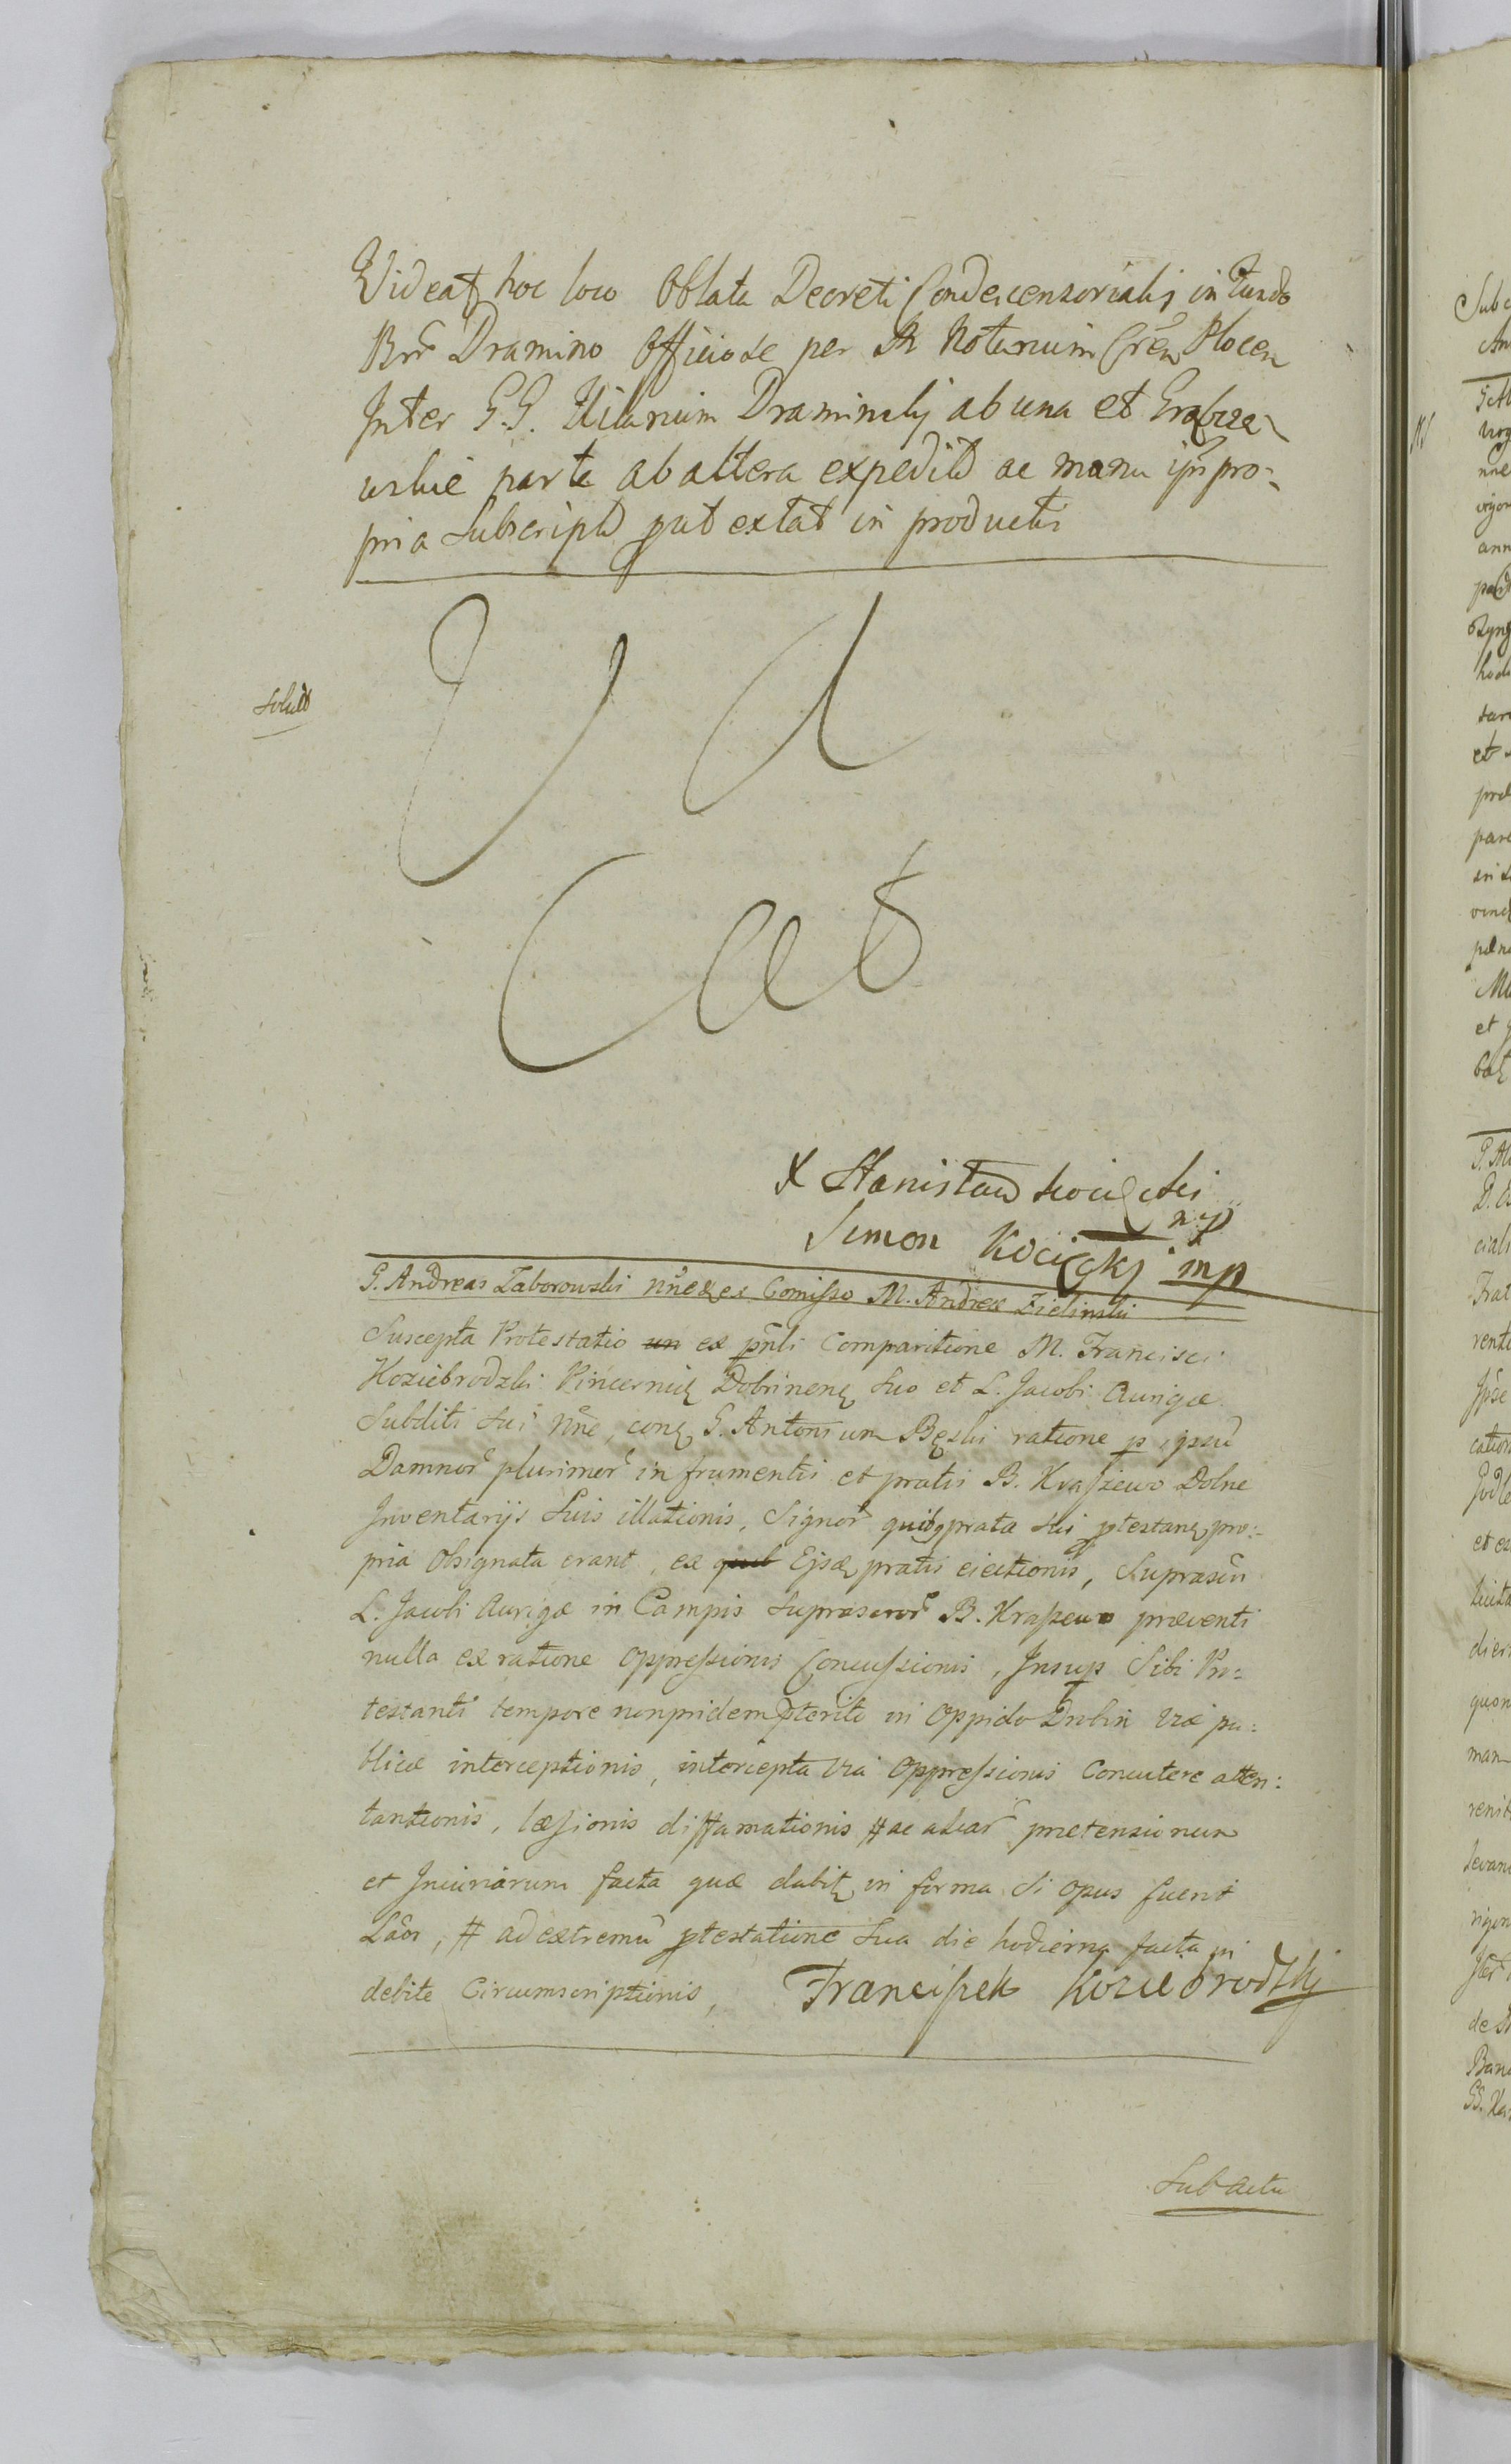 Videat hoc loco Oblata Decreti Condescensorialis in Fundo
Bnr Dramino Officiose per M Notarium Cren Plocen
Inter G.G. Uilanum Draminski ab una et Grabcze
wskie parte ab altera expediti ac manu ipn pro:
pria Subscripti put extat in productis
Solvit
Va
cat
X Stanisław Kocięcki
mp
Simon Kocięckj mp
G. Andreas Zaborowski nne et ex Comisso M. Andreæ Zielinski
Suscepta Protestatio un ex pnli Comparitione M. Francisci
Koziebrodzki Pincernię Dobrinenę Suo et L. Jacobi Aurigæ
Subditi Sui nne, conę G. Antonium Bęski ratione p ipsu
Damnor plurimor in frumentis et pratis B. Kraszewo Dolne
Inventarijs Suis illationis, Signor quibꝫ prata Sui ptestanę pro:
pria Obsignata erant, ex quib Ejsdę pratis eiectionis, Suprascri
L. Jacobi Aurigæ in Campis Suprascror B. Kraszewo præventi
nulla ex ratione Oppressionis Concussionis, Insup Sibi Pro:
testanti tempore nonpridem pterito in Oppido Drobin viæ pu:
blicæ interceptionis, intercepta via Oppressionis Concutere atten:
tantionis, læsionis diffamationis # ac aliar prætensionum
et Iniuriarum facta quæ dabitę in forma Si Opus fuerit
Laor, # ad extremu ptestatione Sua die hodierna facta in
debite Circumscriptionis, Franciszek Koziebrodzkj
Sub actu